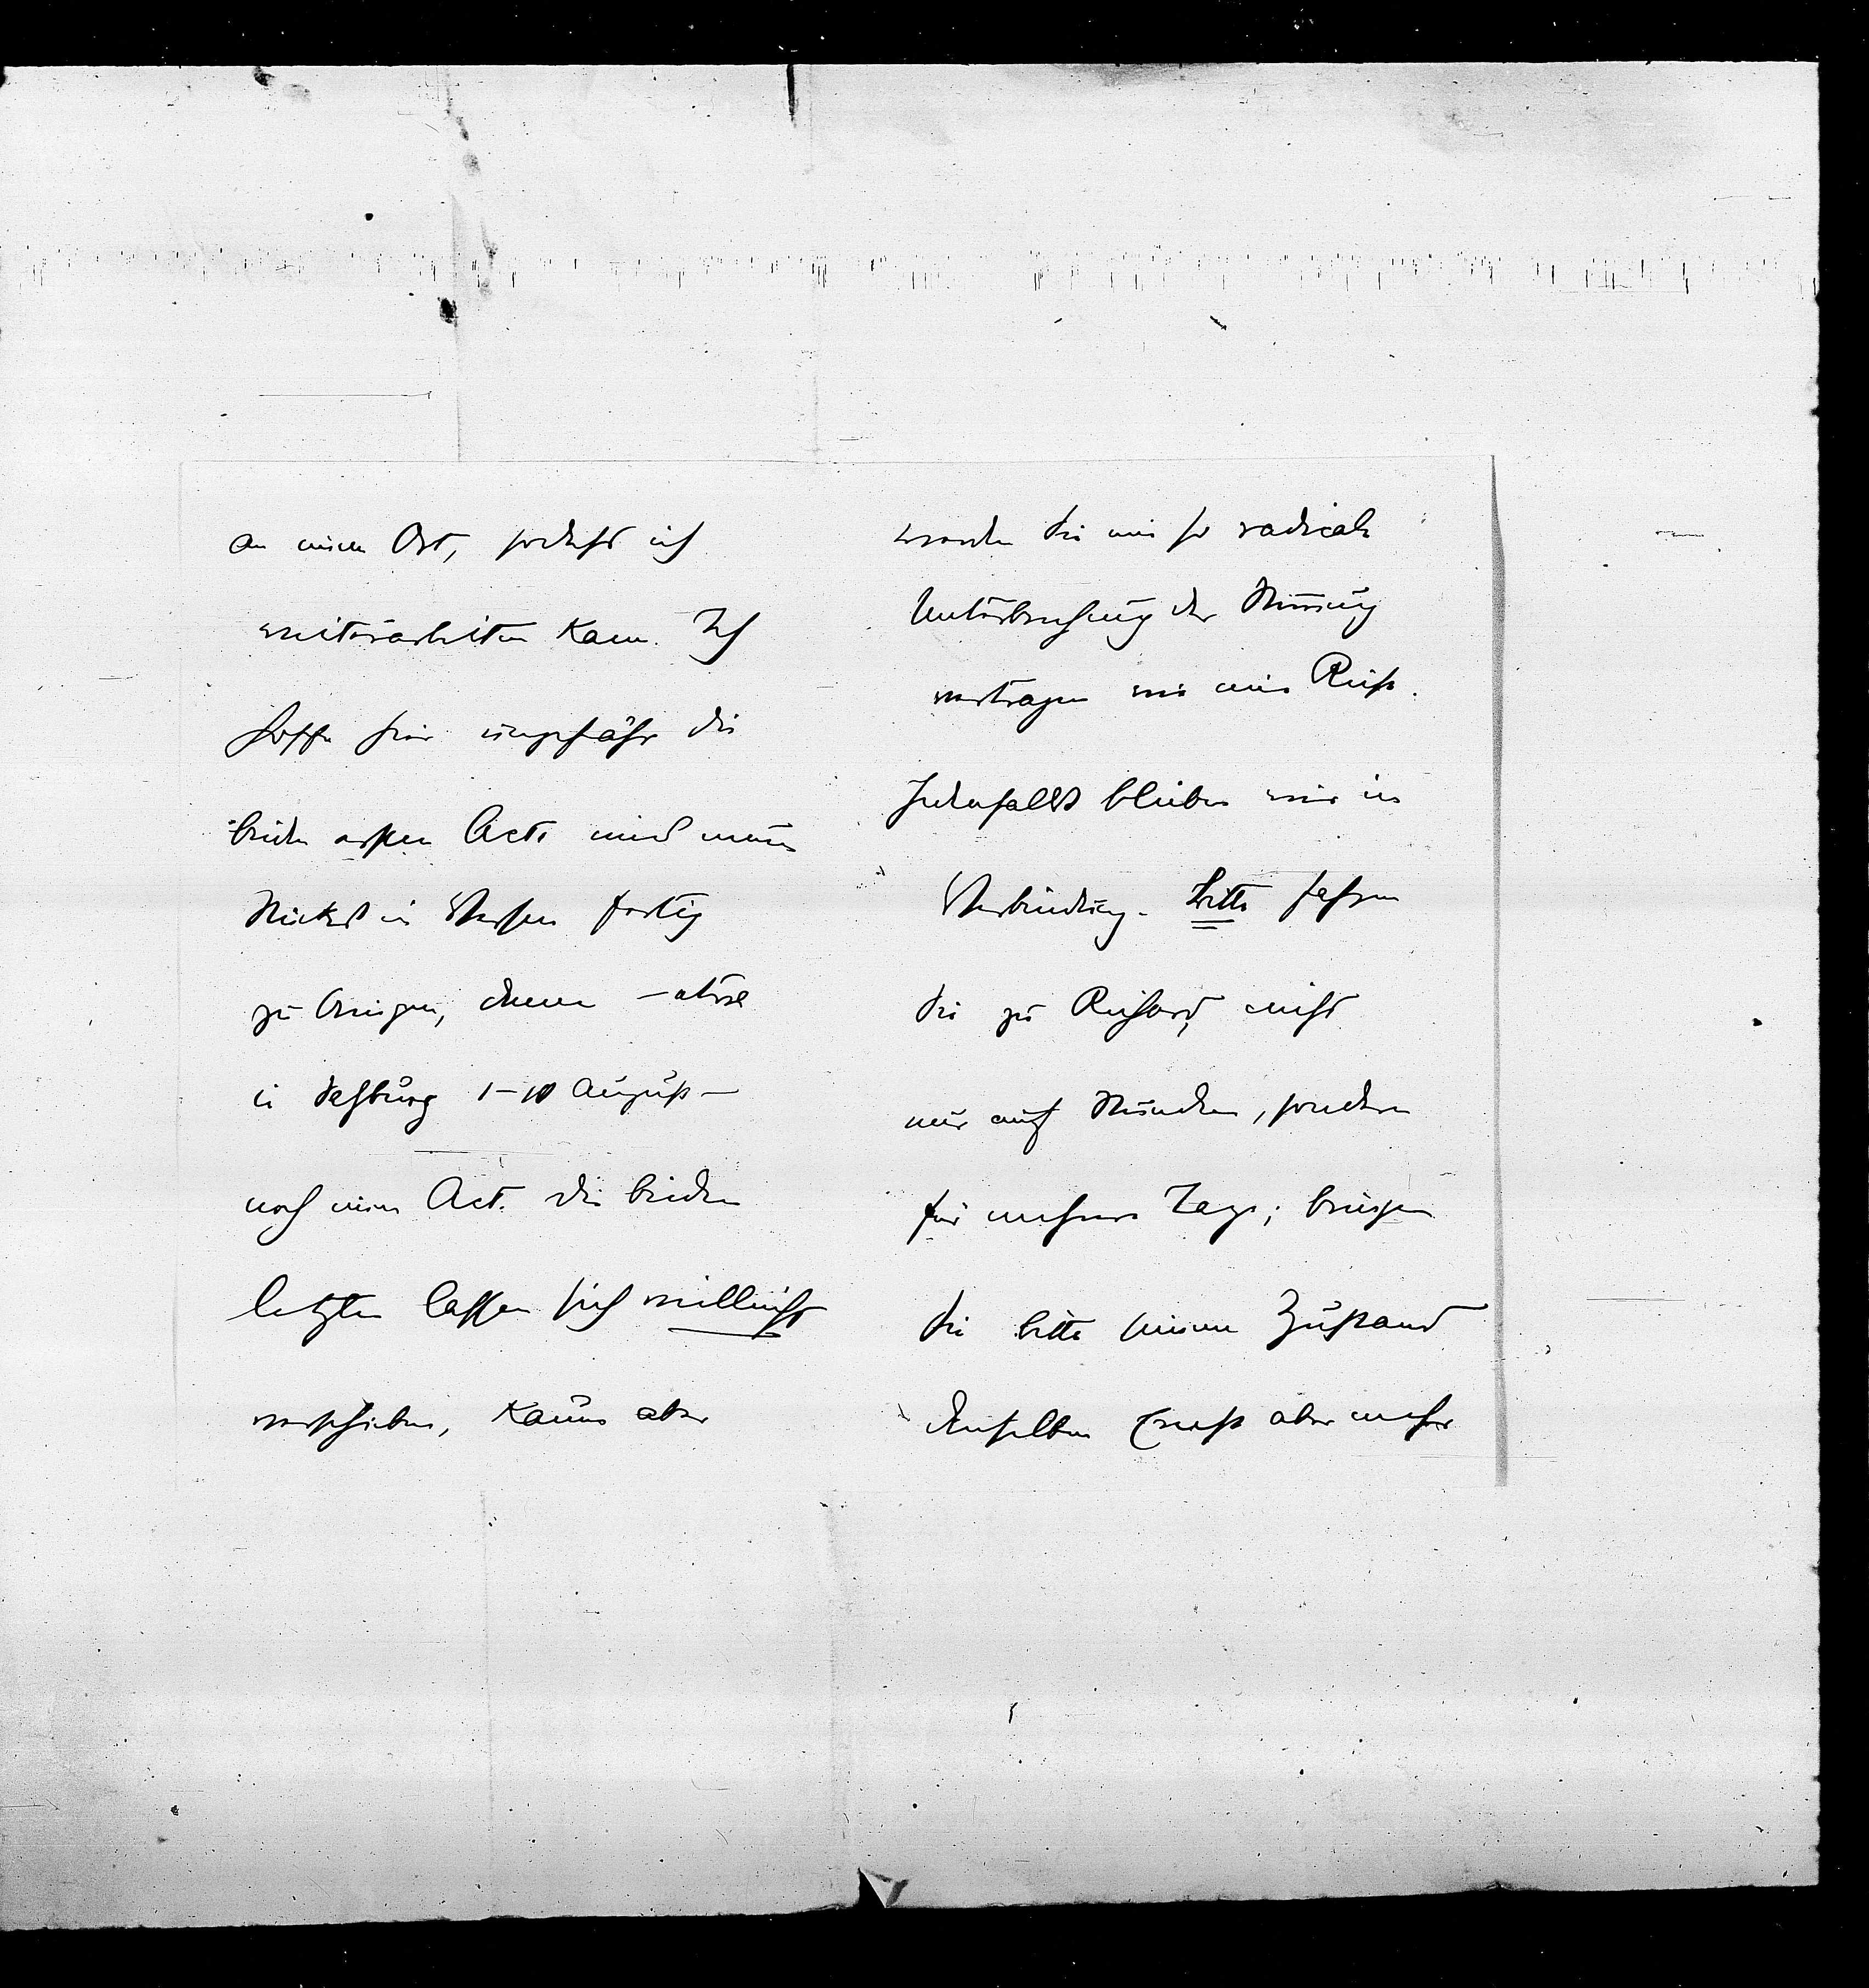 an einen Ort, sodass ich
weiterarbeiten kann. Ich
hoffe hier ungefähr die
beiden ersten Acte meines neuen
Stückes in Versen fertig
zu bringen, dann – etwa
in Salzburg 1–10 August –
noch einen Act. Die beiden
letzten lassen sich vielleicht
verschieben, kaum aber
würden sie eine so radicale
Unterbrechung der Stimmung
vertragen wie eine Reise.
Jedenfalls bleiben wir in
Verbindung. Bitte fahren
Sie zu Richard, nicht
nur auf Stunden, sondern
für mehrere Tage; bringen
Sie bitte seinem Zustand
denselben Ernst aber mehr